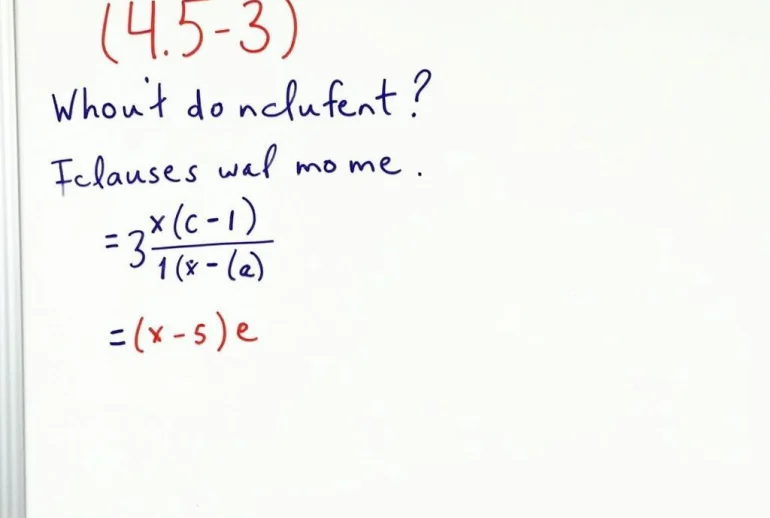 (4.5-3)
Whou't do nclufent?
Iclauses wal mo me.
=3 x(c-1)/1(x-(a)
=(x-s)e